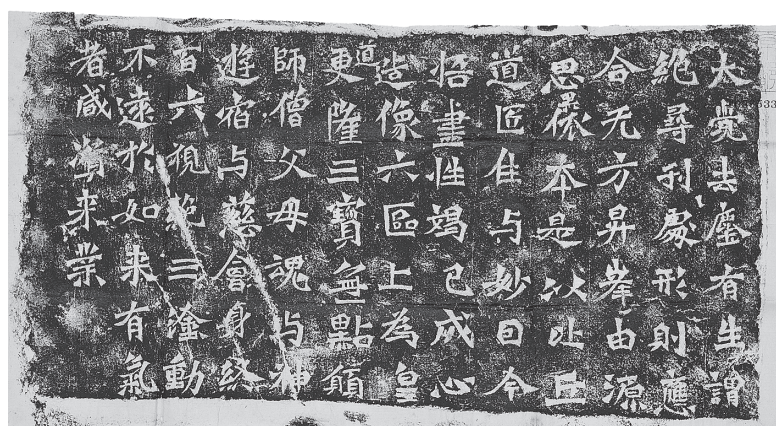 太覺去塵有生謂
絶尋刹處形則應
合无方昇峯由源
思儼本是以比丘
道匠住与妙因今
悟盡性竭已成心
造像六區上為皇
道更隆三寶無點願
師僧父母魂与神
遊宿与慈會身終
百六視絶三塗動
不遠於如来有氣
者咸来業